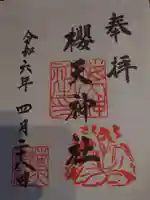 奉拝
櫻天神社
令和六年 四月二十一日